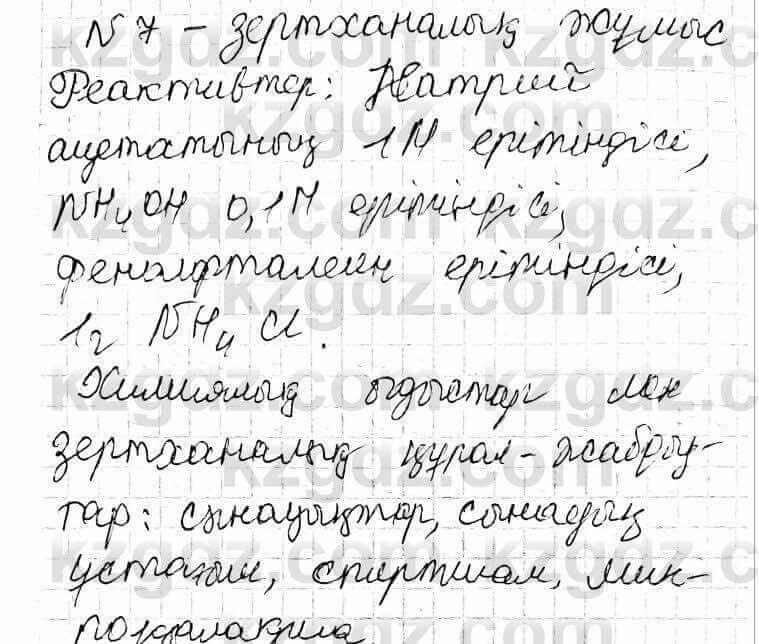 N 7 - зертханалық жұмыс
Реактивтер: Натрий
ацетатының 1М ерітіндісі,
NH4OH 0,1М ерітіндісі,
фенолфталеин ерітіндісі,
1г NH4Cl.
Химиялық ыдыстар мен
зертханалық құрал-жабдық-
тар: сынауықтар,
ұстағыш, спиртшам, мик-
kzgdz.com